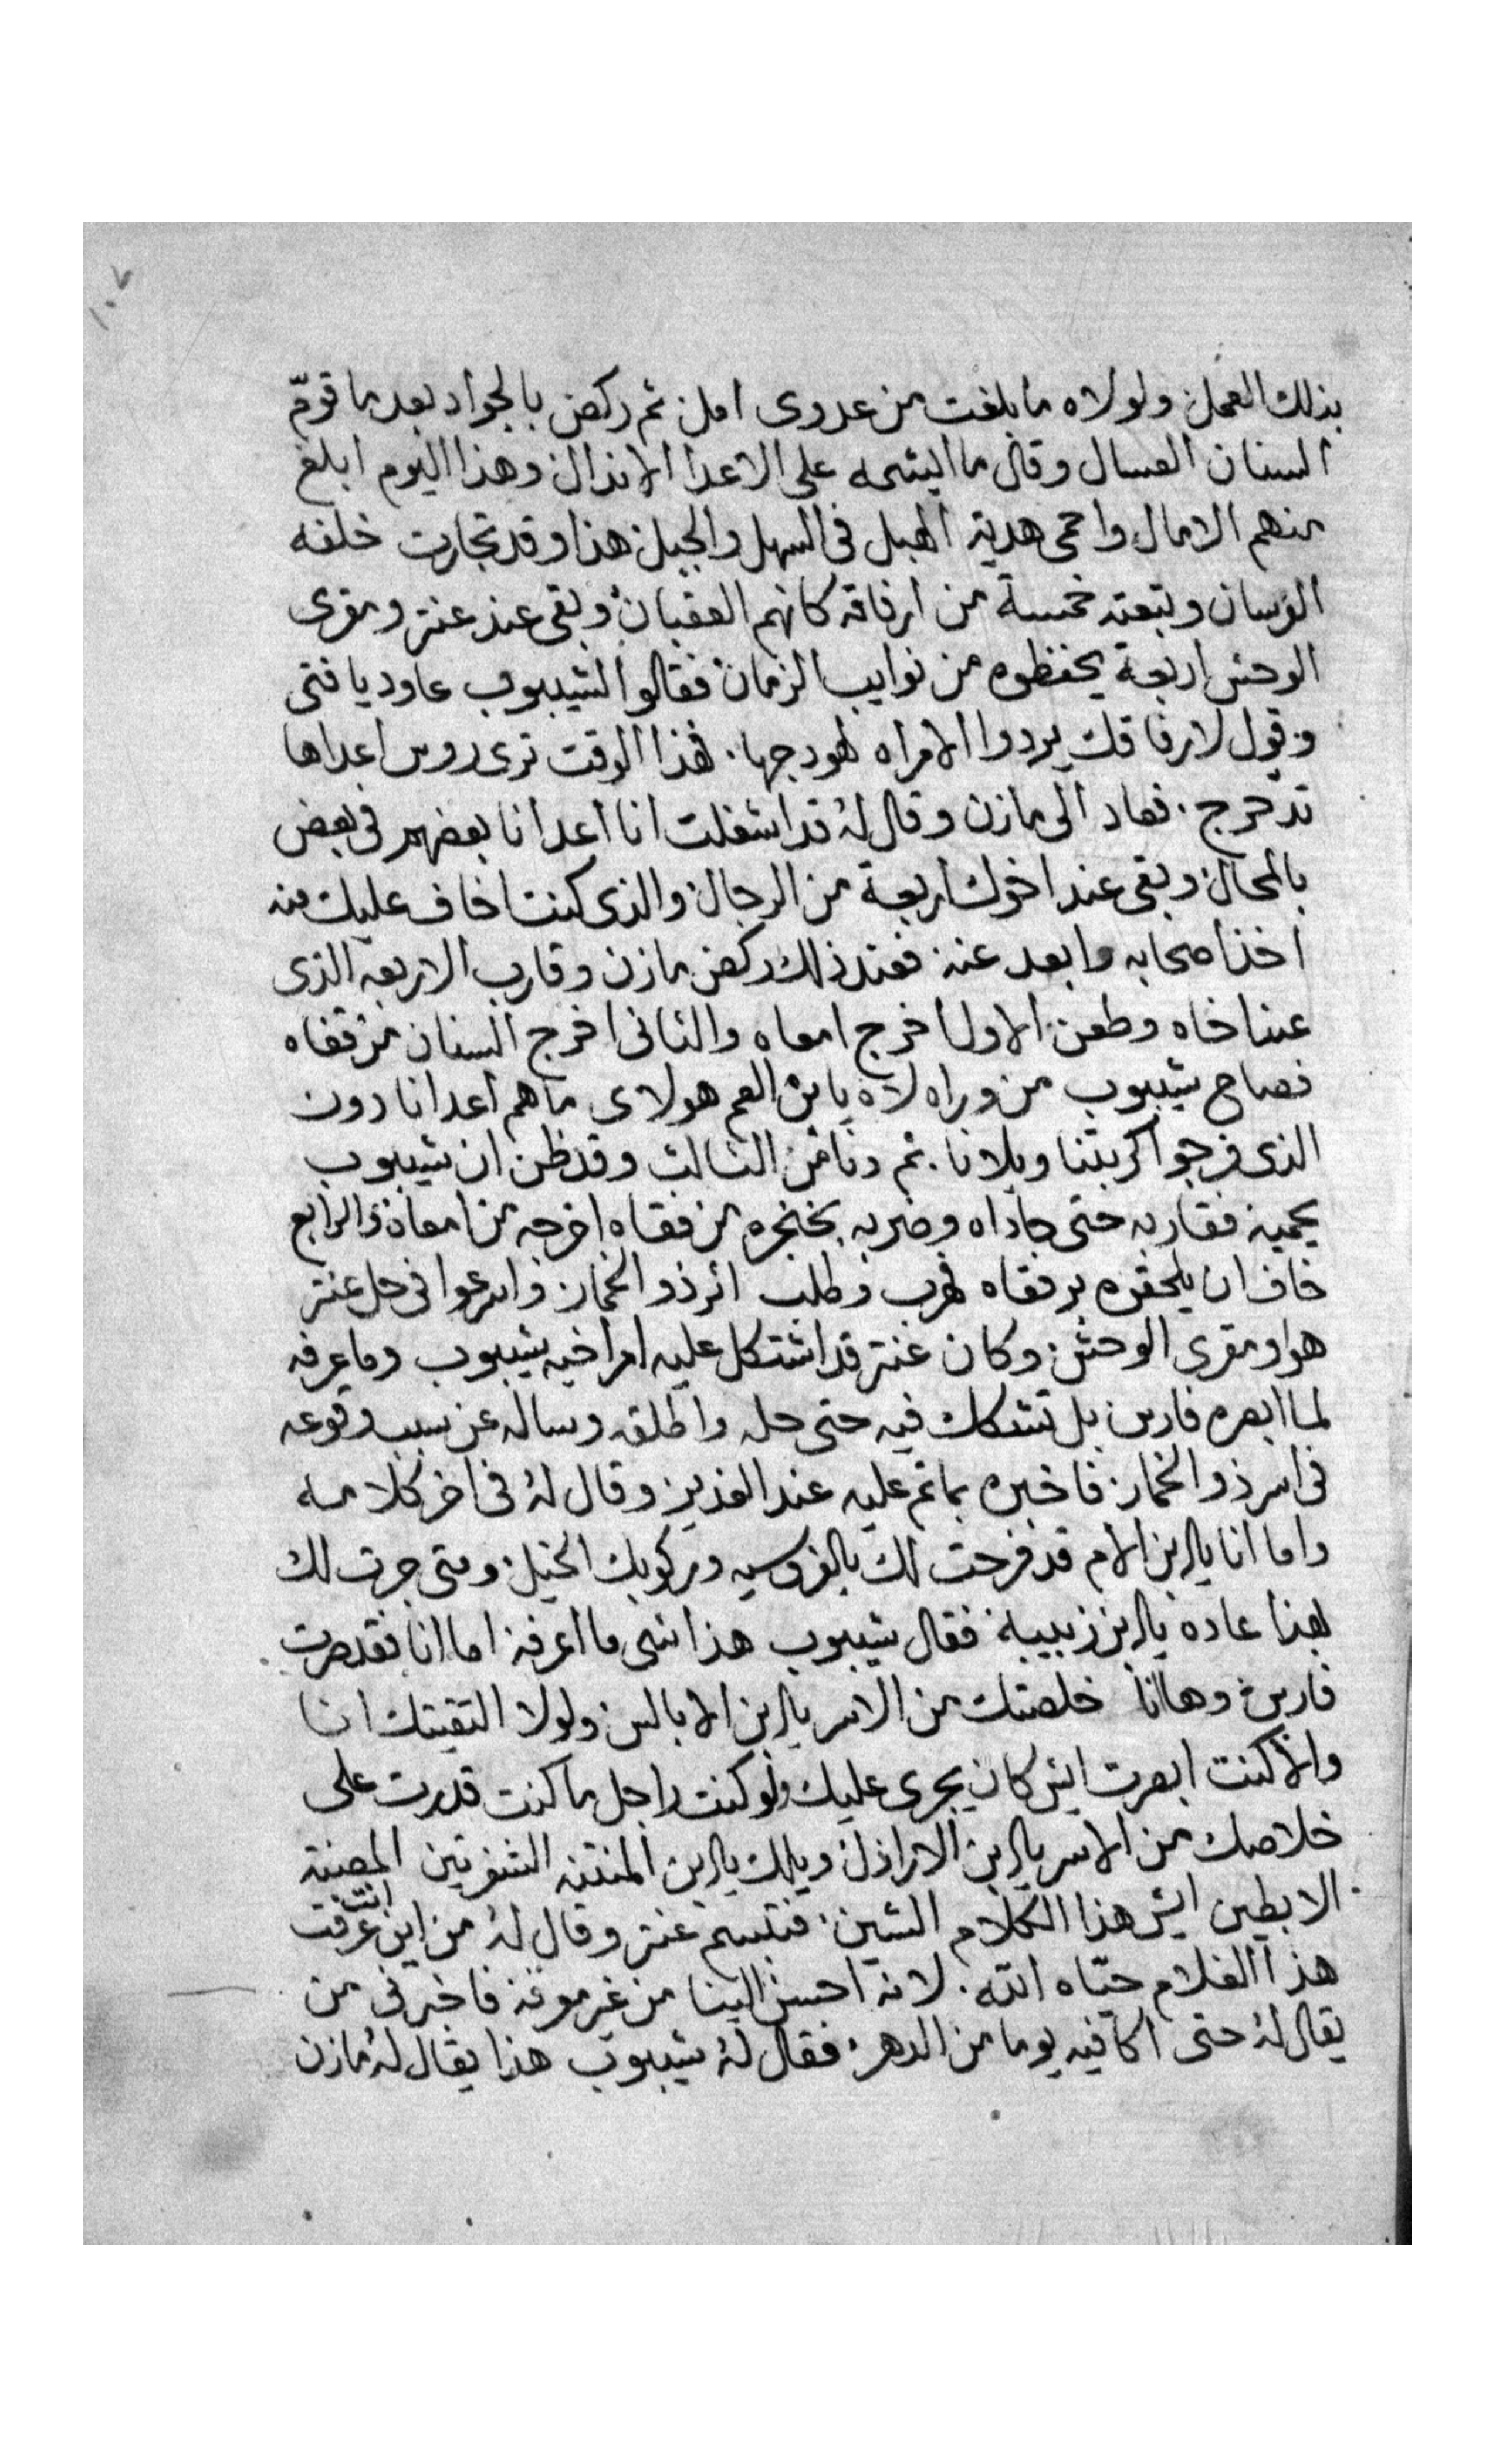 ١٠٧
بذلك العمل ولولاه ما بلغت من عدوى امل ثم ركض بالجواد بعد ما قوّم
السنان العسال وقال ما ايشمه على الاعدا الاندال وهذا اليوم ابلغ
منهم الامال واحمى هدية الهبل فى السهل والجبل هذا وقد تجارت خلفه
الفرسان وتبعته خمسة من ارفاقه كانهم العقبان وبقى عند عنتر ومقرى
الوحش اربعة يحفظوه من نوايب الزمان فقالوا لشيبوب عاود يا فتى
وقول لارفاقك يردوا الامراه لهودجها. فهذا الوقت ترى روس اعداها
تدحرج. فعاد الى مازن وقال له قد اشغلت انا اعدانا بعضهم فى بعض
بالمحال وبقى عند اخوك اربعة من الرجال والذى كنت اخاف عليك منه
اخذ اصحابه وابعد عنه فعند ذلك ركض مازن وقارب الاربعه الذى
عند اخاه وطعن الاول اخرج امعاه والثانى اخرج السنان من قفاه
فصاح شيبوب من وراه لاه يا بن العم هولاى ما هم اعدانا دون
الذى فرجوا كربتنا وبلانا. ثم دنا من الثالث وقد ظن ان شيبوب
يحميه فقاربه حتى حاداه وضربه بخنجره من قفاه اخرجه من امعاه والرابع
خاف ان يلحقوه برفقاه فهرب وطلب اثر ذو الخمار واسرعوا فى حل عنتر
هو ومقرى الوحش وكان عنتر قد اشتكل عليه امر اخيه شيبوب وما عرفه
لما ابصره فارس بل تشكك فيه حتى حله واطلقه وساله عن سبب وقوعه
فى اسر ذو الخمار فاخبره بما تم عليه عند الغدير وقال له فى اخر كلامه
واما انا يا بن الام قد فرحت لك بالفروسيه وبركوبك الخيل ومتى جرت لك
بهذا عاده يا بن زبيبة فقال شيبوب هذا شى ما اعرفه اما انا فقد صرت
فارس وها انا خلصتك من الاسر يا بن الابالس ولولا التقيتك انا
والا كنت ابصرت ايش كان يجرى عليك ولو كنت راجل ما كنت قدرت على
خلاصك من الاسر يا بن الاراذل ويلك يا بن المنتنه الشفرتين المصنة
الابطين ايش هذا الكلام الشين. فتبسم عنتر وقال له من اين انت عرفت
هذا الغلام حيّاه الله. لانه احسن الينا من غير معرفه فاخبرنى من
يقال له حتى اكافيه يوما من الدهر فقال له شيبوب هذا يقال له مازن